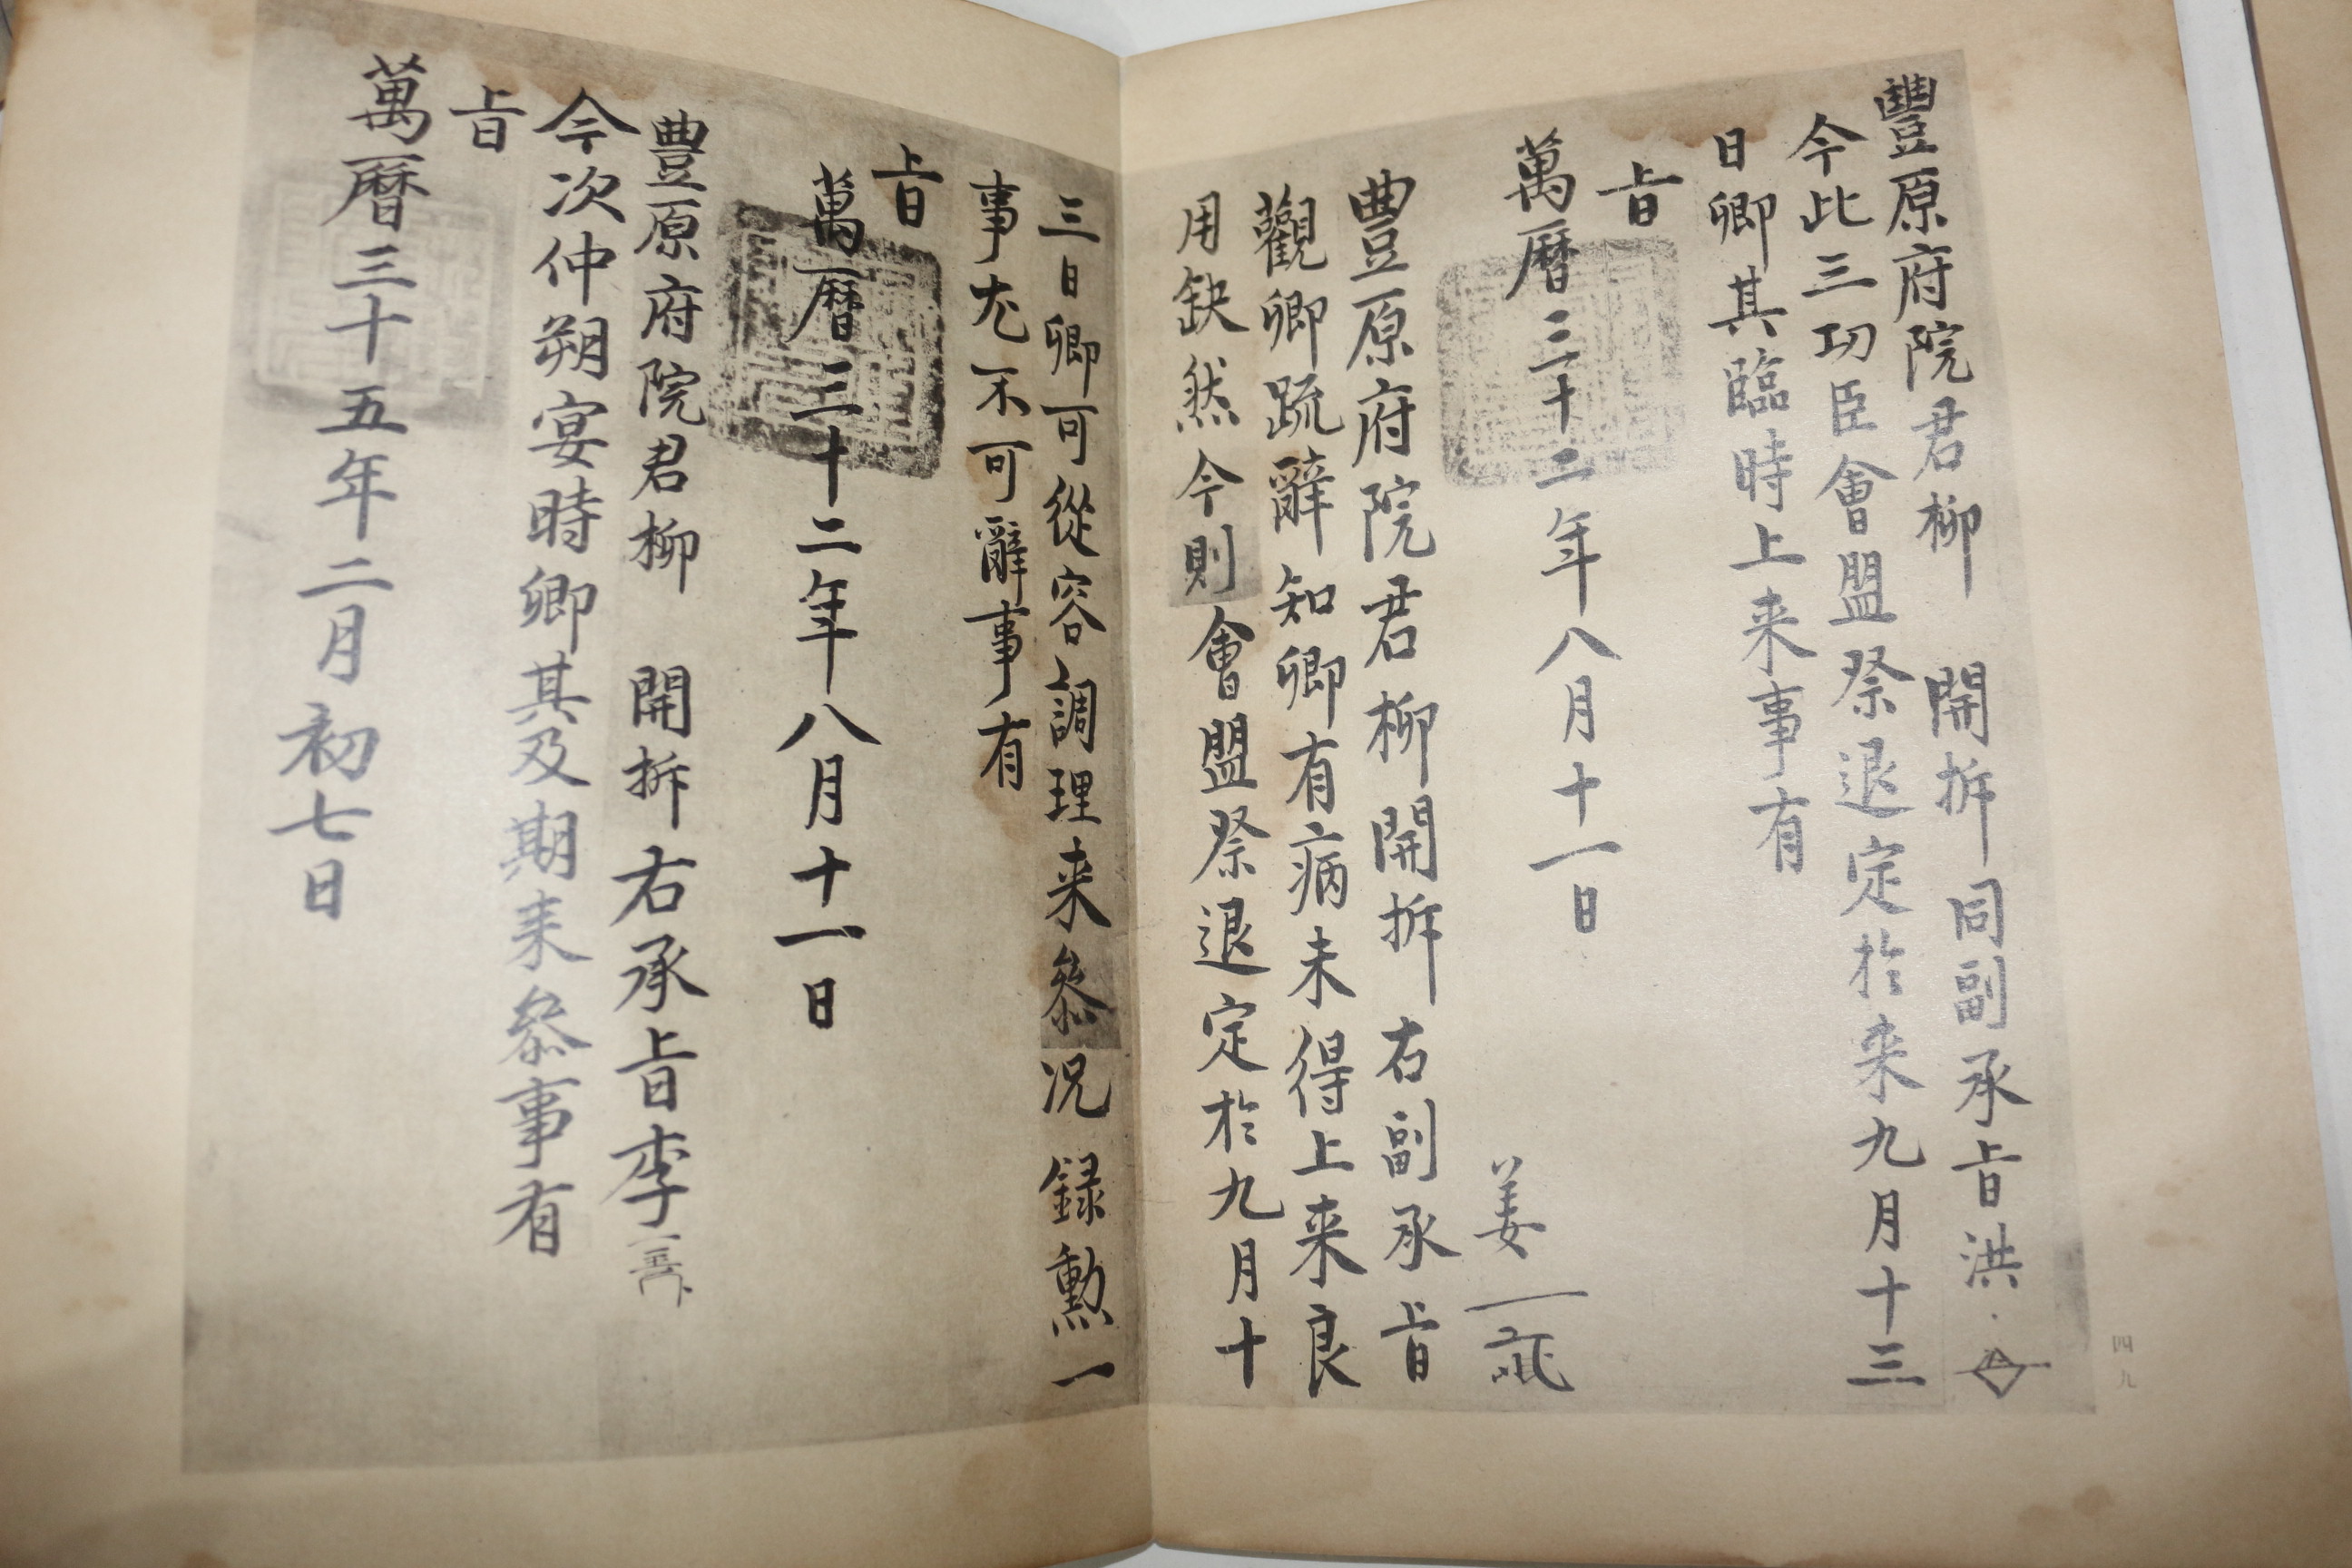 豐原府院君柳 開拆 同副承旨洪
今此三功臣會盟祭退定於来九月十三
日卿其臨時上来事有
旨
萬曆三十二年八月十一日
姜
豊原府院君柳開拆 右副承旨
觀卿疏辭知卿有病未得上来良
用缺然今則會盟祭退定於九月十
三日卿可從容調理来叅况録勲一
事尤不可辭事有
旨
萬曆三十二年八月十一日
豊原府院君柳 開拆 右承旨李
今次仲朔宴時卿其及期来叅事有
旨
萬曆三十五年二月初七日
四九